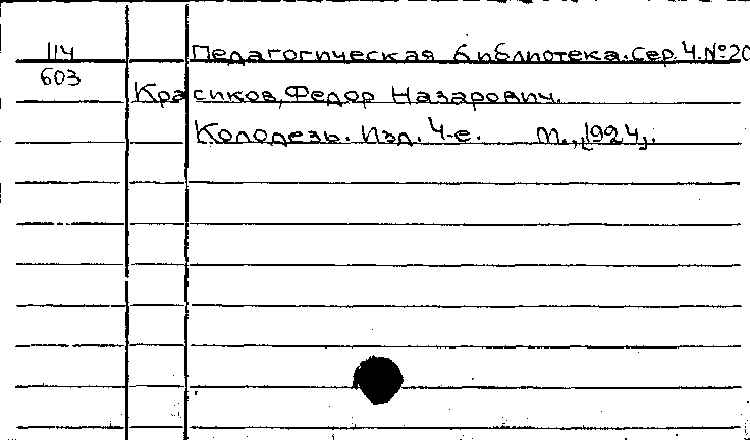 114
603
Педагогическая библиотека. Сер. 4. №20
Красиков, Федор Назарович.
Колодезь. Изд. 4-е. М., [1924].